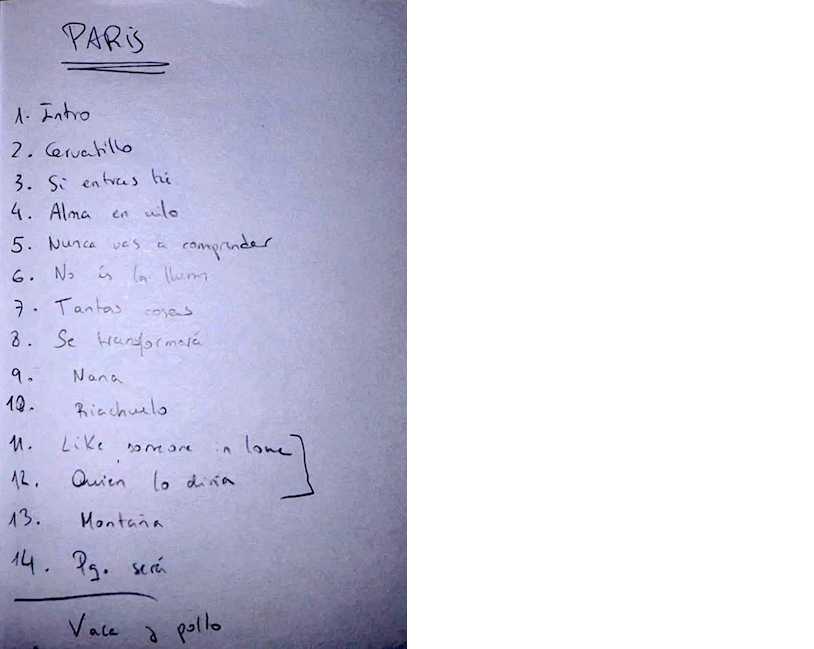 PARIS
1. Intro
2. Cervatillo
3. Si entras tú
4. Alma en vilo
5. Nunca vas a comprender
6. No és la llum
7. Tantas cosas
8. Se transformará
9. Nana
10. Riachuelo
11. Like someone in love
12. Quien lo diria
13. Montaña
14. Pq. será
Vaca y pollo